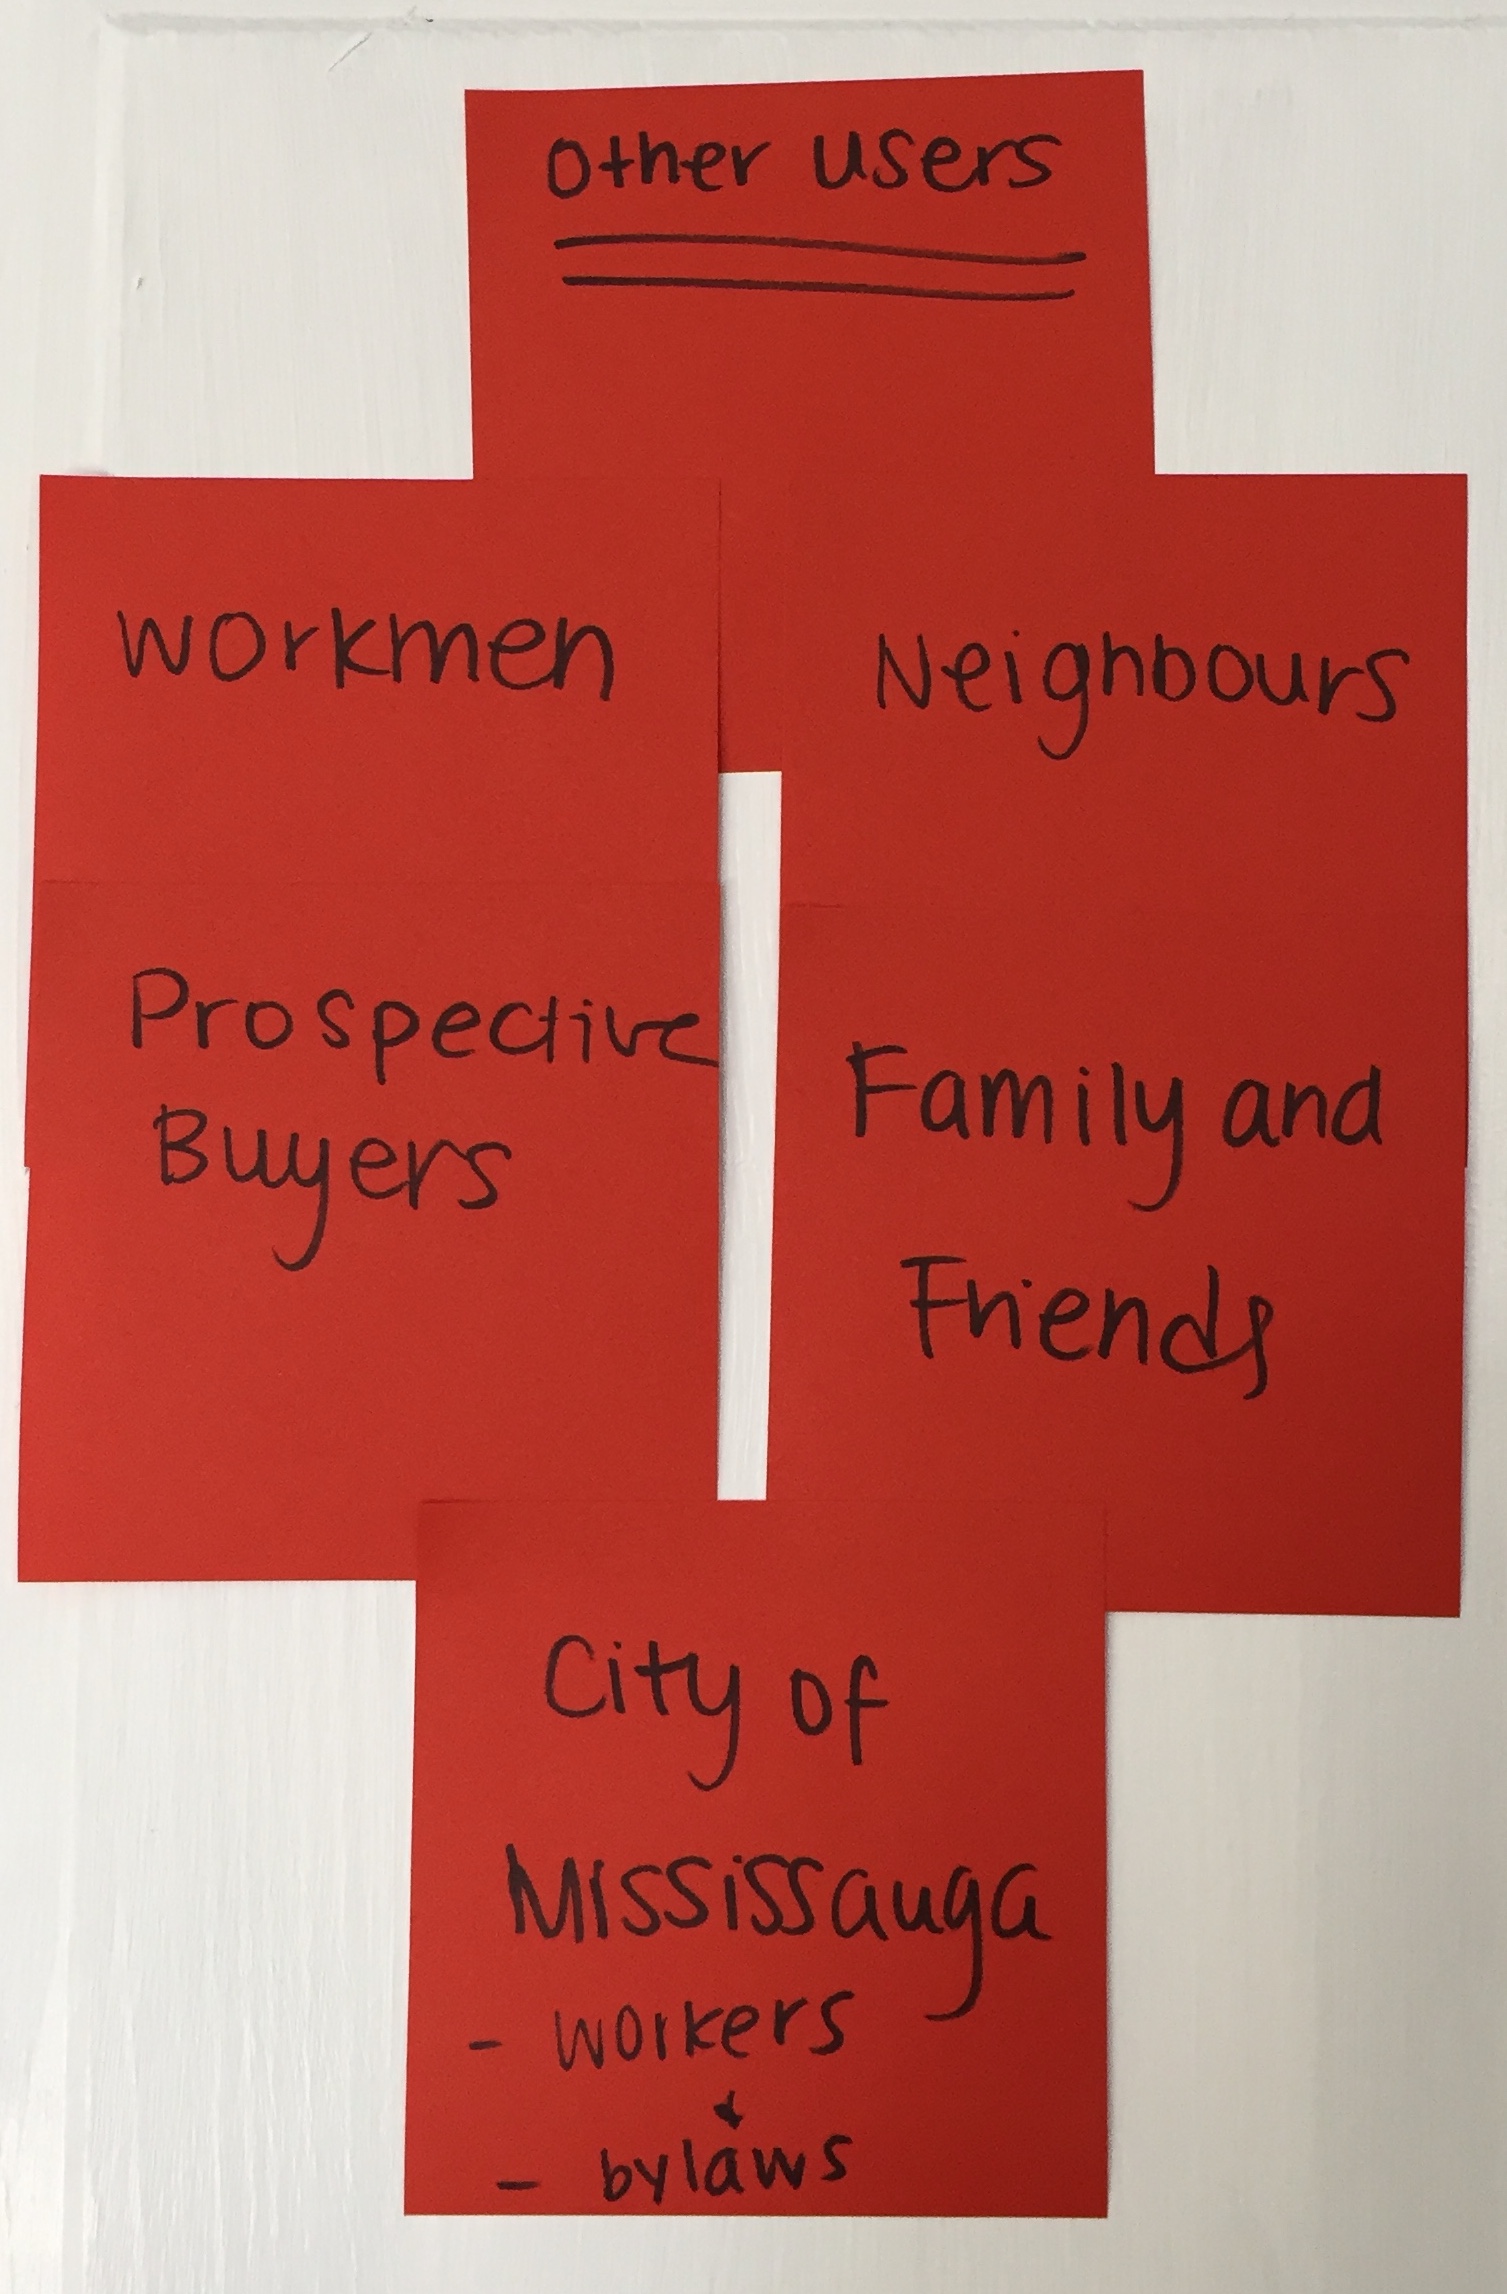 Other users
workmen
Neighbours
Prospective
Buyers
Family and
Friends
City of
Mississauga
- workers
+
- bylaws